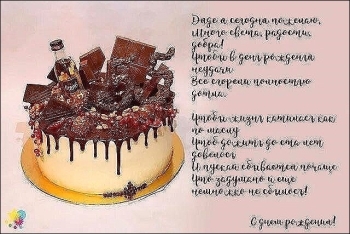 Дядя я сегодня пожелаю,
Много света, радости,
добра!
Чтобы в день рождения
неудачи
Все сгорели полностью
дотла.
Чтобы жизнь катилась как
по маслу
Чтоб дожить до ста лет
довелось
И пускай сбывается почаще
Что задумано и еще
немножко не сбылось!
С днем рождения!